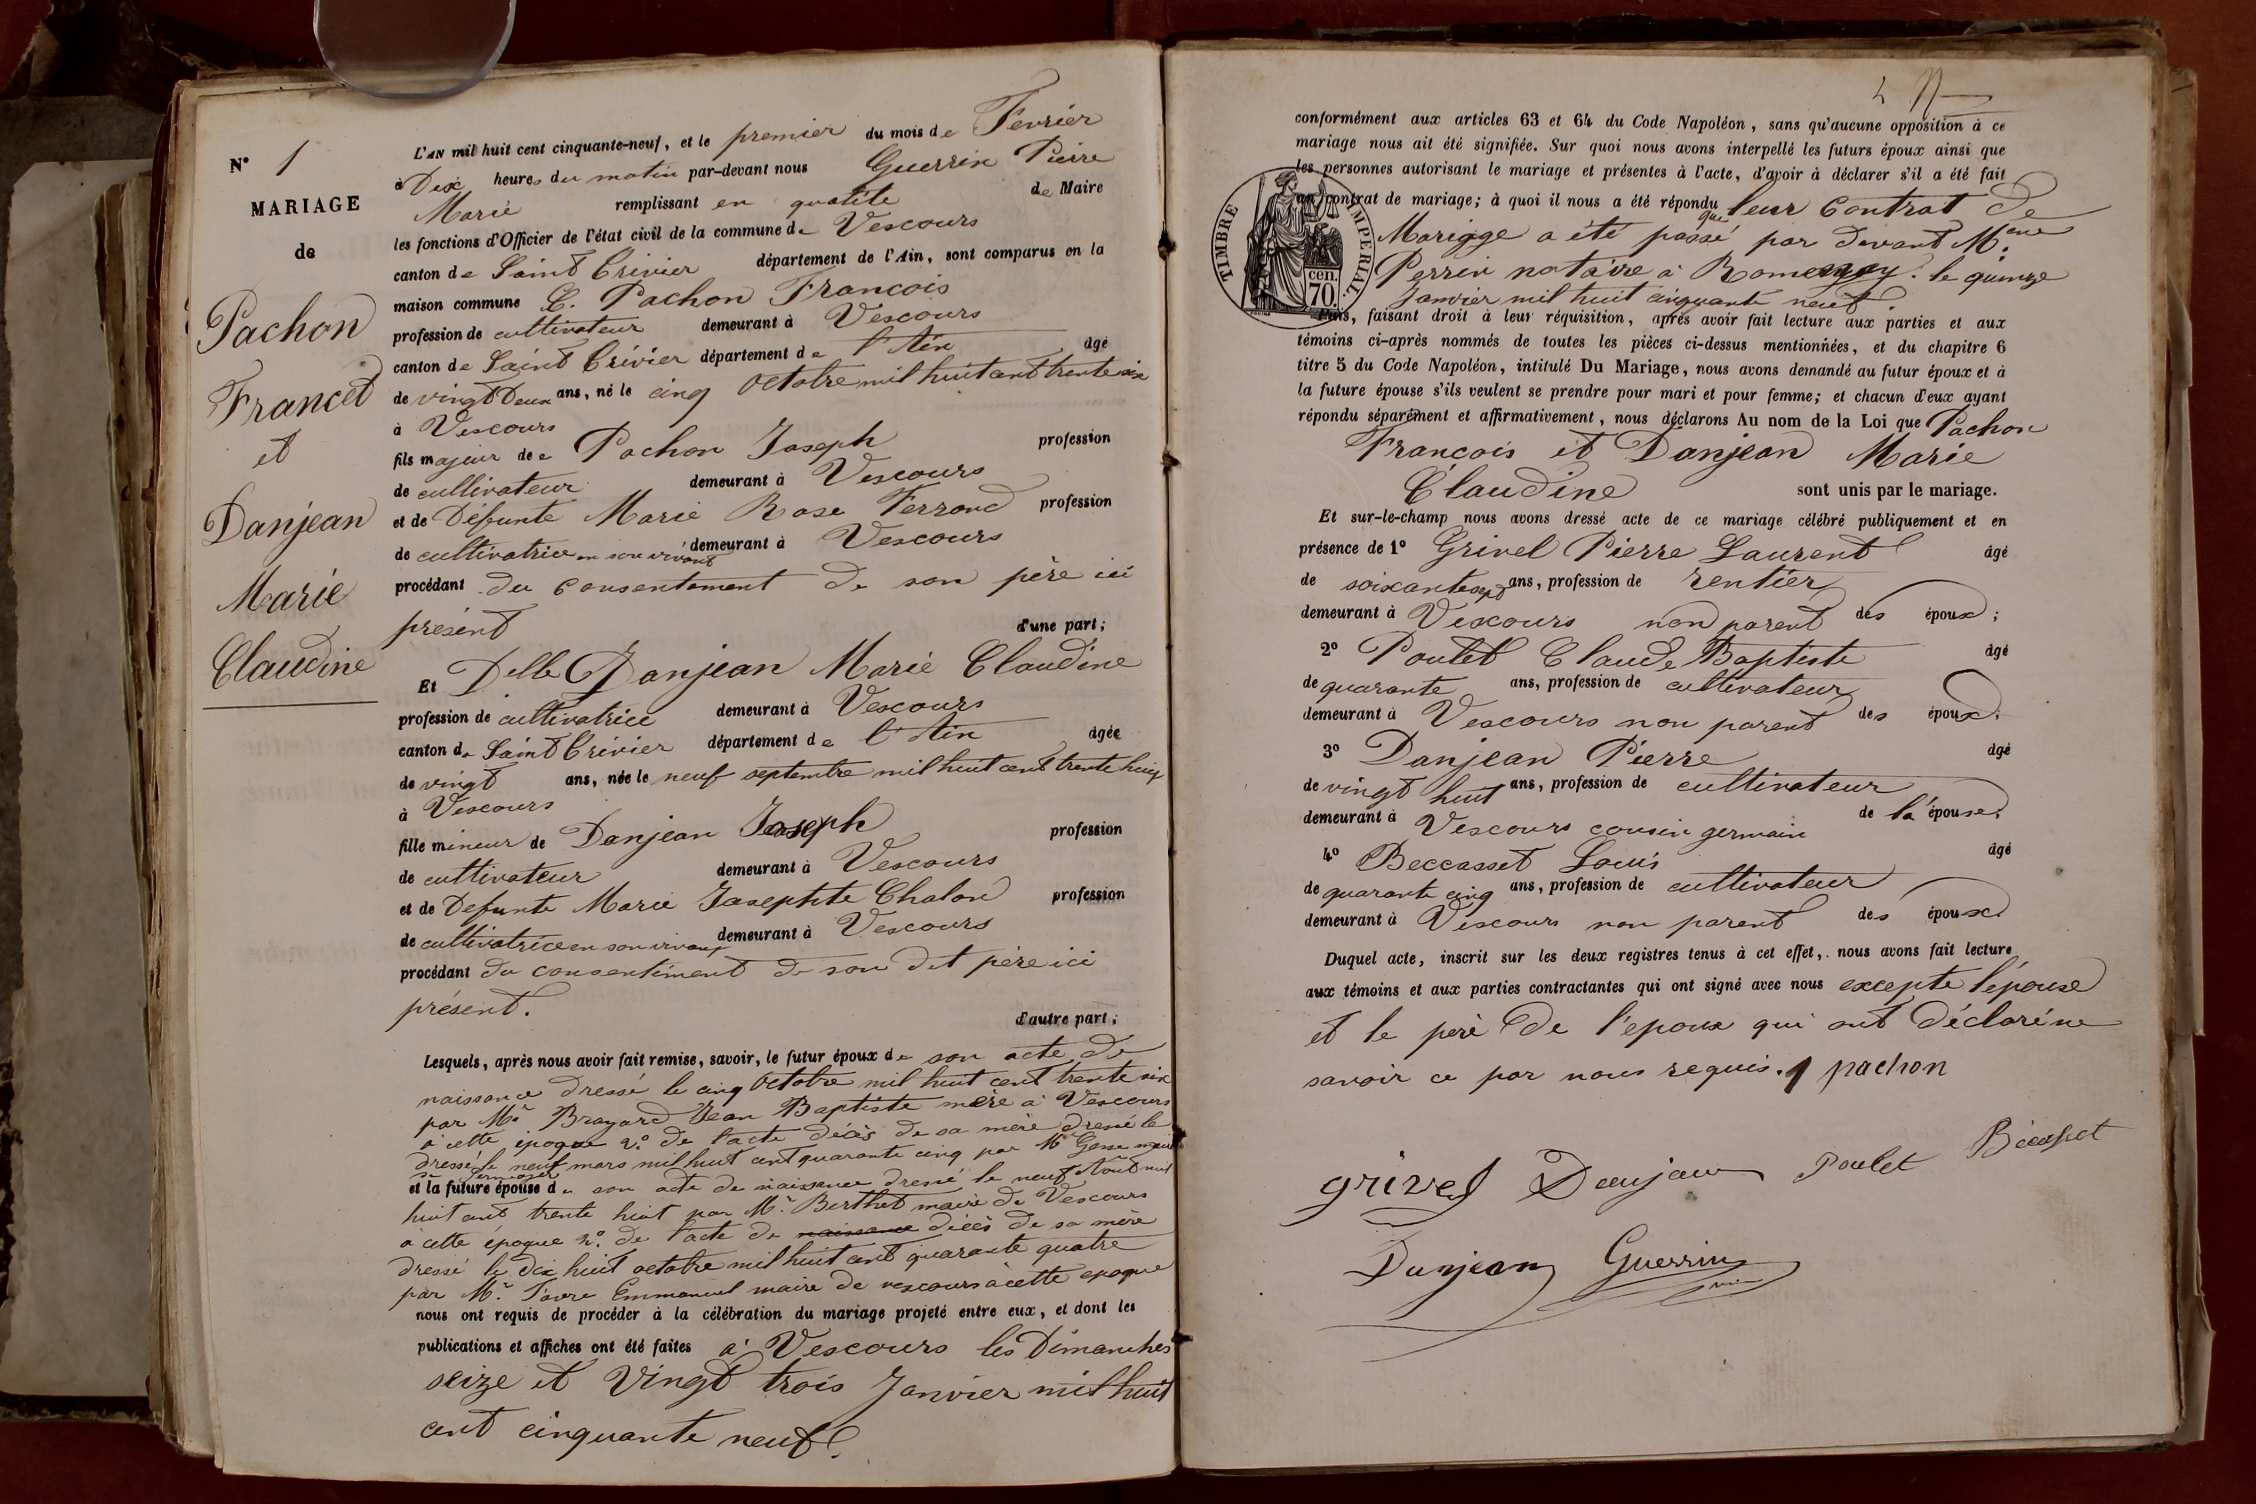 N° 1
MARIAGE
de
Pachon
Francet
et
Danjean
Marie
Claudine
L'AN mil huit cent cinquante-neuf, et le premier du mois de Fevrier
à Dix heures du matin par-devant nous Guerrin Pierre
Marie remplissant en qualité de Maire
les fonctions d'Officier de l'état civil de la commune de Vescours
canton de Saint Trivier département de l'Ain, sont comparus en la
maison commune S. Pachon Francois
profession de cultivateur demeurant à Vescours
canton de Saint Trivier département de l'Ain âgé
de vingt Deux ans, né le cinq octobre mil huit cent trente six
à Vescours
fils majeur de Pachon Joseph profession
de cultivateur demeurant à Vescours
et de Défunte Marie Rose Ferrand profession
de cultivatrice en son vivant demeurant à Vescours
procédant du consentement de son père ici
présent d'une part;
Et Delle Danjean Marie Claudine
profession de cultivatrice demeurant à Vescours
canton de Saint Trivier département de l'Ain âgée
de vingt ans, née le neuf septembre mil huit cent trente huit
à Vescours
fille mineur de Danjean Joseph profession
de cultivateur demeurant à Vescours
et de Defunte Marie Josephte Chalon profession
de cultivatrice en son vivant demeurant à Vescours
procédant du consentiment de son dit père ici
présent. d'autre part;
Lesquels, après nous avoir fait remise, savoir, le futur époux de son acte de
naissance dressé le cinq octobre mil huit cent trente six
par Mr Brayard Jean Baptiste maire à Vescours
à cette époque 2° de l'acte décès de sa mère dressé le
dressé le neuf mars mil huit cent quarante cinq par Mr
et la future épouse de son acte de naissance dressé le neuf Août mil
huit cent trente huit par Mr Berthet maire de Vescours
a cette époque 2° de l'acte de naissance décès de sa mère
dressé le dix huit octobre mil huit cent quarante quatre
par Mr Favre Emmanuel maire de vescours à cette epoque
nous ont requis de procéder à la célébration du mariage projeté entre eux, et dont les
publications et affiches ont été faites à Vescours les Dimanches
seize et Vingt trois Janvier mil huit
cent cinquante neuf.
conformément aux articles 63 et 64 du Code Napoléon, sans qu'aucune opposition à ce
mariage nous ait été signifiée. Sur quoi nous avons interpellé les futurs époux ainsi que
les personnes autorisant le mariage et présentes à l'acte, d'avoir à déclarer s'il a été fait
un contrat de mariage; à quoi il nous a été répondu que leur Contrat de
Mariage a été passé par devant M.
Perrin notaire à Romenay le quinze
Janvier mil huit cinquante neuf.
TIMBRE IMPERIAL.
70. cen.
Puis, faisant droit à leur réquisition, après avoir fait lecture aux parties et aux
témoins ci-après nommés de toutes les pièces ci-dessus mentionnées, et du chapitre 6
titre 5 du Code Napoléon, intitulé Du Mariage, nous avons demandé au futur époux et à
la future épouse s'ils veulent se prendre pour mari et pour femme; et chacun d'eux ayant
répondu séparément et affirmativement, nous déclarons Au nom de la Loi que Pachon
Francois et Danjean Marie
Claudine sont unis par le mariage.
Et sur-le-champ nous avons dressé acte de ce mariage célébré publiquement et en
présence de 1° Grivel Pierre Laurent âgé
de soixante sept ans, profession de rentier
demeurant à Vescours non parent des époux;
2° Poulet Claude Baptiste âgé
de quarante ans, profession de cultivateur
demeurant à Vescours non parent des époux;
3° Danjean Pierre âgé
de vingt huit ans, profession de cultivateur
demeurant à Vescours cousin germain de la épouse;
4° Beccasset Louis âgé
de quarante cinq ans, profession de cultivateur
demeurant à Vescours non parent des époux.
Duquel acte, inscrit sur les deux registres tenus à cet effet, nous avons fait lecture
aux témoins et aux parties contractantes qui ont signé avec nous excepte l'épouse
et le père de l'epoux qui ont déclaré ne
savoir ce par nous requis. pachon
grivel Danjean Poulet
Danjean Guerrin